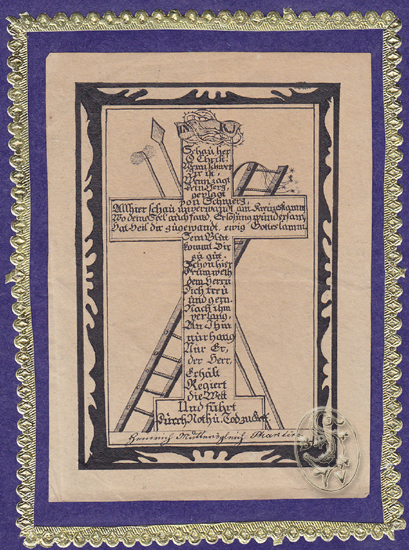 INRI
Schau her
O Christ
Wenn
Dir ist,
Wenn zagt
dein Herz,
geplagt
von Schmerz,
Allhier schau unverwandt am Kreuzstamm
Wo deine Seel auch fand Erlösung wundersam,
Hat Heil Dir zugewandt, ewig Gottes Lamm
Sein Blut
kommt Dir
zu gut.
Schon hier
Drum weih
dem Herrn
Dich treu
und gern.
Nach ihm
verlang,
An Ihm
nur hang
Nur Er,
der Herr,
Erhält
Regiert
die Welt
Und führt
Durch Noth u. Tod zu Gott
Heinrich